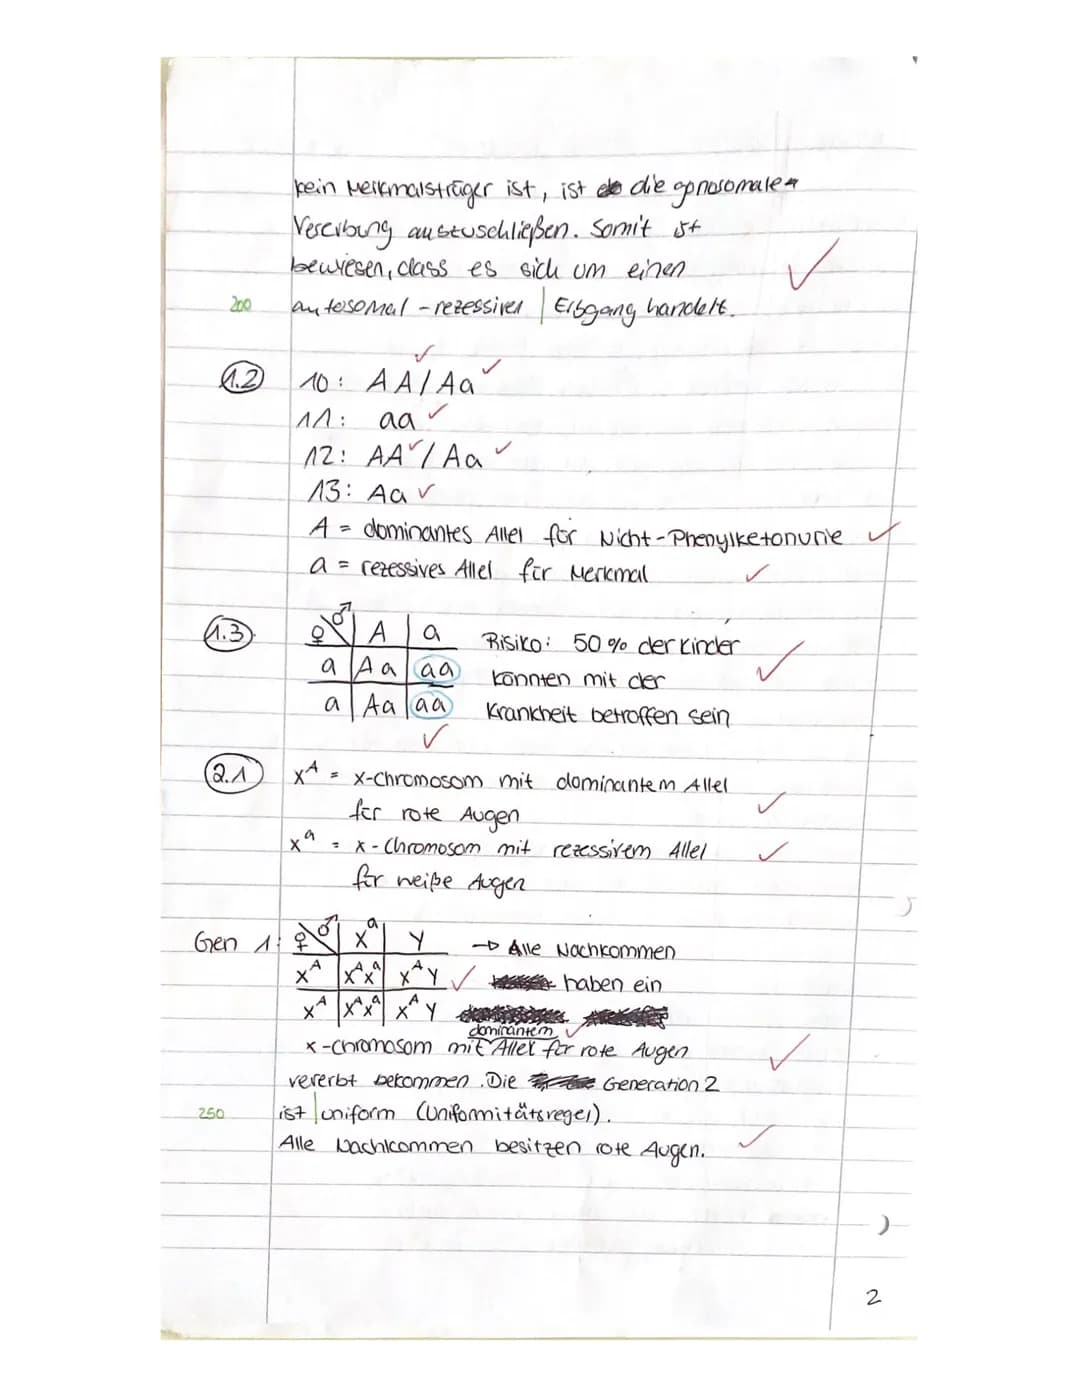 kein Merkmalsträger ist, ist die gonosomale
Vererbung auszuschließen. Somit ist
bewiesen, dass es sich um einen
200 autosomal-rezessiven | Erbgang handelt.
1.2 10: AA/Aa
11: aa
12: AA/Aa
13: Aa
A = dominantes Allel für Nicht-Phenylketonurie
a = rezessives Allel für Merkmal
1.3 ♀ ♂ | A | a Risiko: 50 % der Kinder
a | Aa | aa könnten mit der
a | Aa | aa Krankheit betroffen sein
2.1 x^A = x-Chromosom mit dominantem Allel
für rote Augen
x^a = x-Chromosom mit rezessivem Allel
für weiße Augen
Gen 1: ♀ ♂ | x^a | Y → Alle Nachkommen
x^A | x^A x^a | x^A Y haben ein
x^A | x^A x^a | x^A Y
dominantem
x-Chromosom mit Allel für rote Augen
vererbt bekommen. Die Generation 2
250 ist | uniform (Uniformitätsregel).
Alle Nachkommen besitzen rote Augen.
2